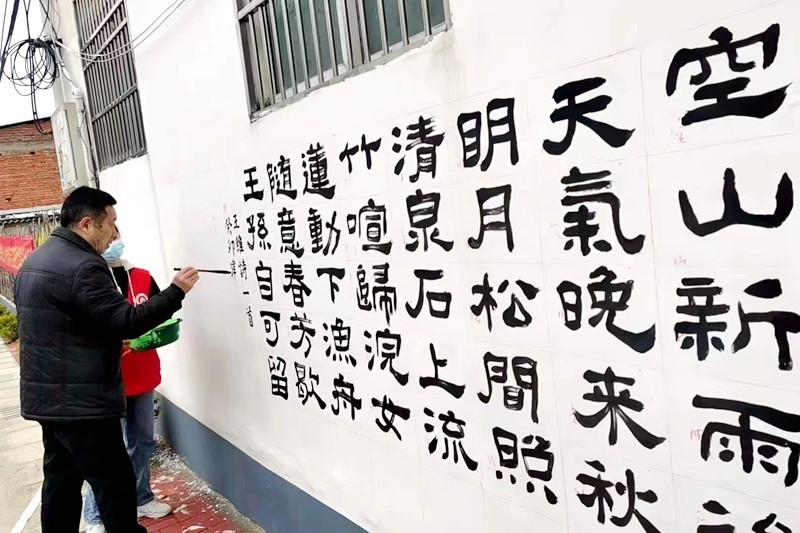 空山新雨後
天氣晚来秋
明月松間照
清泉石上流
竹喧歸浣女
蓮動下漁舟
随意春芳歇
王孫自可留
王維詩一首